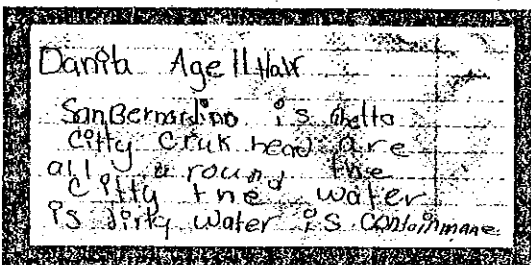 Danita Age 11 Half
San Bernardino is Ghetto
citty Cruk head are
all around the
citty the water
is dirty water is Contoinmane